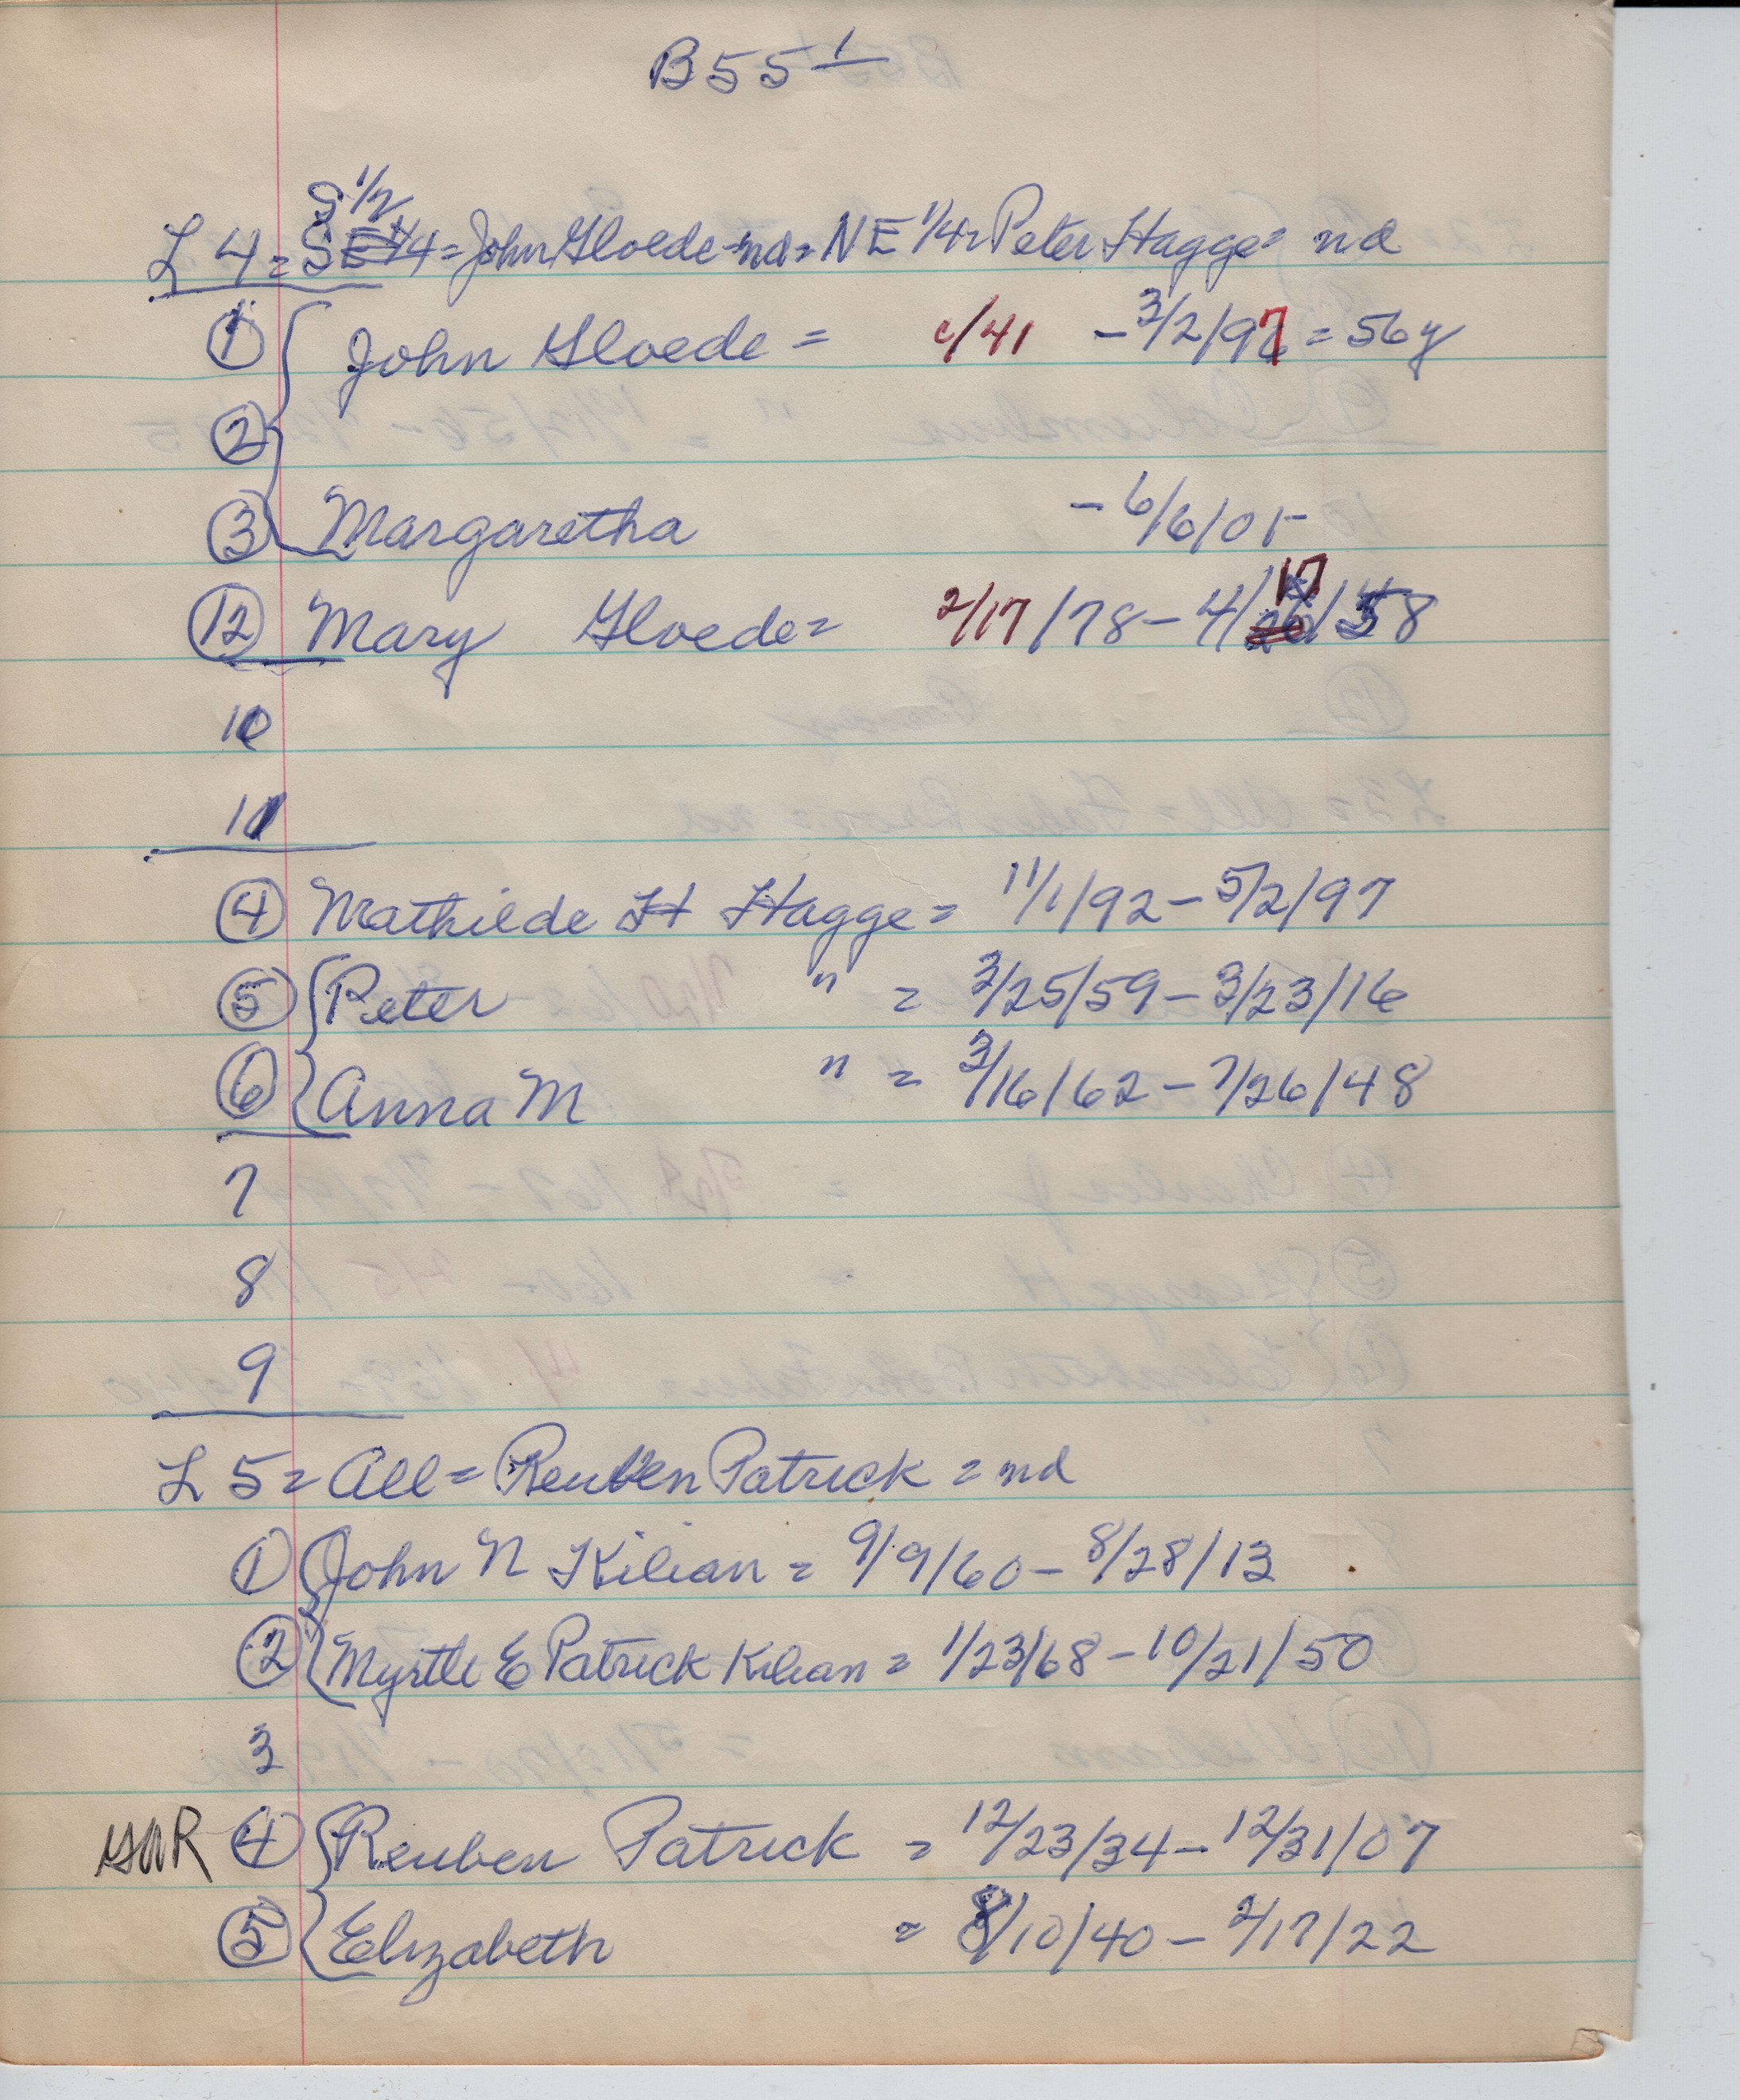 B55 1
S 1/2
L 4 = SE 1/4 = John Gloede - nd = NE 1/4 = Peter Hagge = nd
① John Gloede = c/41 - 3/2/97 = 56y
②
③ Margaretha - 6/6/05
⑫ Mary Gloede = 2/17/78 - 4/17/58
10
11
④ Mathilde H Hagge = 11/1/92 - 5/2/97
⑤ Peter " = 3/25/59 - 3/23/16
⑥ Anna M " = 3/16/62 - 7/26/48
7
8
9
L 5 = All = Reuben Patrick = nd
① John N Kilian = 9/9/60 - 8/28/13
② Myrtle E Patrick Kilian = 1/23/68 - 10/21/50
3
GAR ④ Reuben Patrick = 12/23/34 - 12/31/07
⑤ Elizabeth = 8/10/40 - 2/17/22